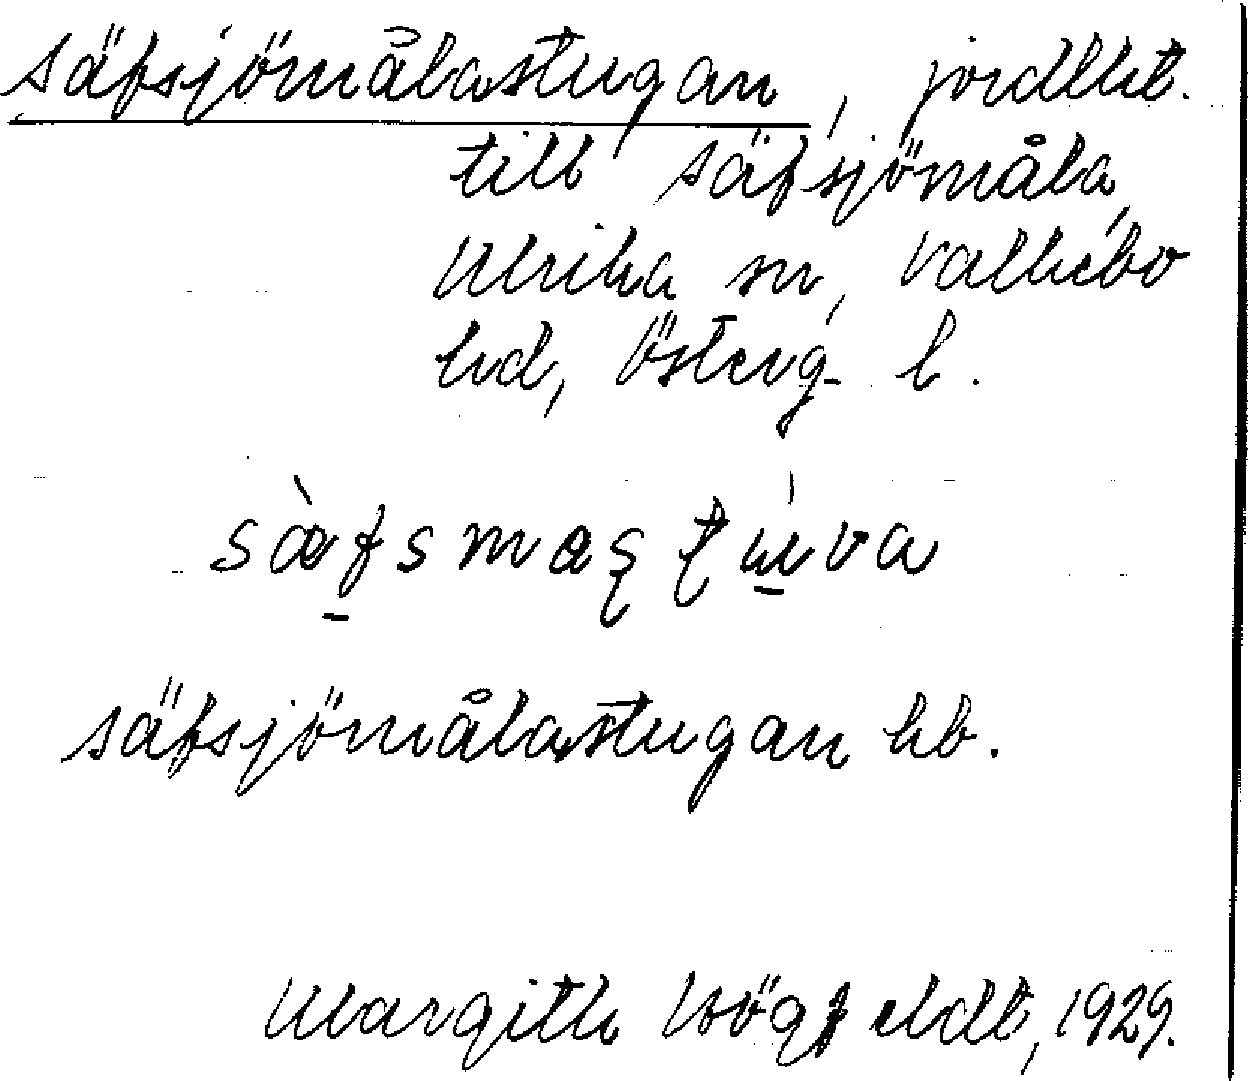 Säfsjömålastugan, jordlht.
till Säfsjömåla,
Ulrika sn, Valkebo
hd, Österg. l.
sæ̀fsmaʂʈúva
säfsjömålastugan hb.
Margith Högfeldt, 1929.